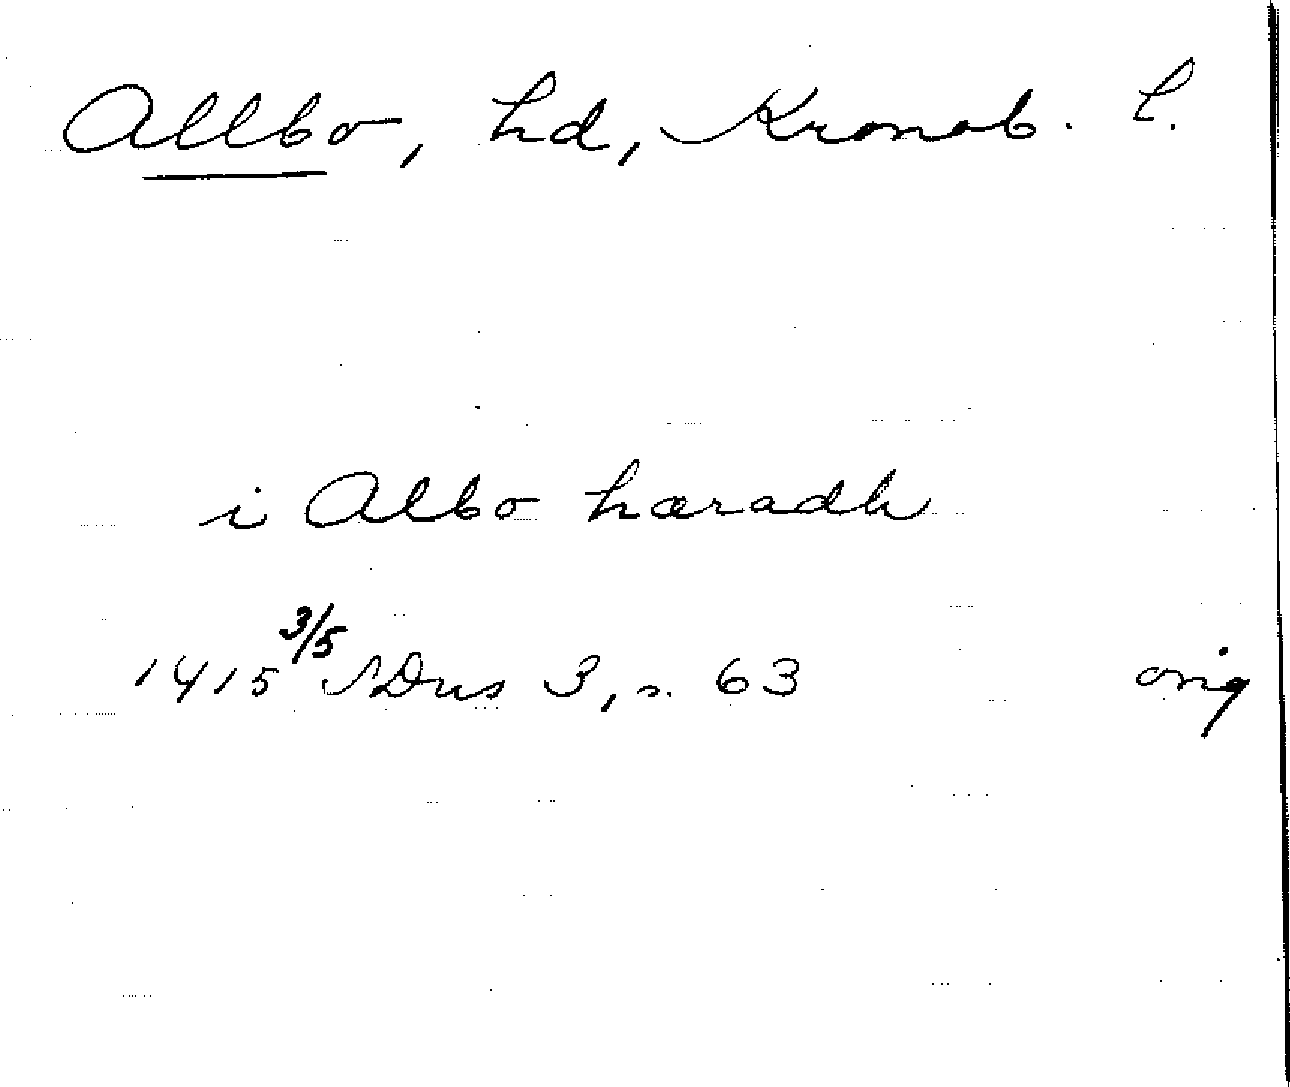 Allbo, hd, Kronob. l.
i Albo haradh
1415 3/5 SDns 3, s. 63 orig